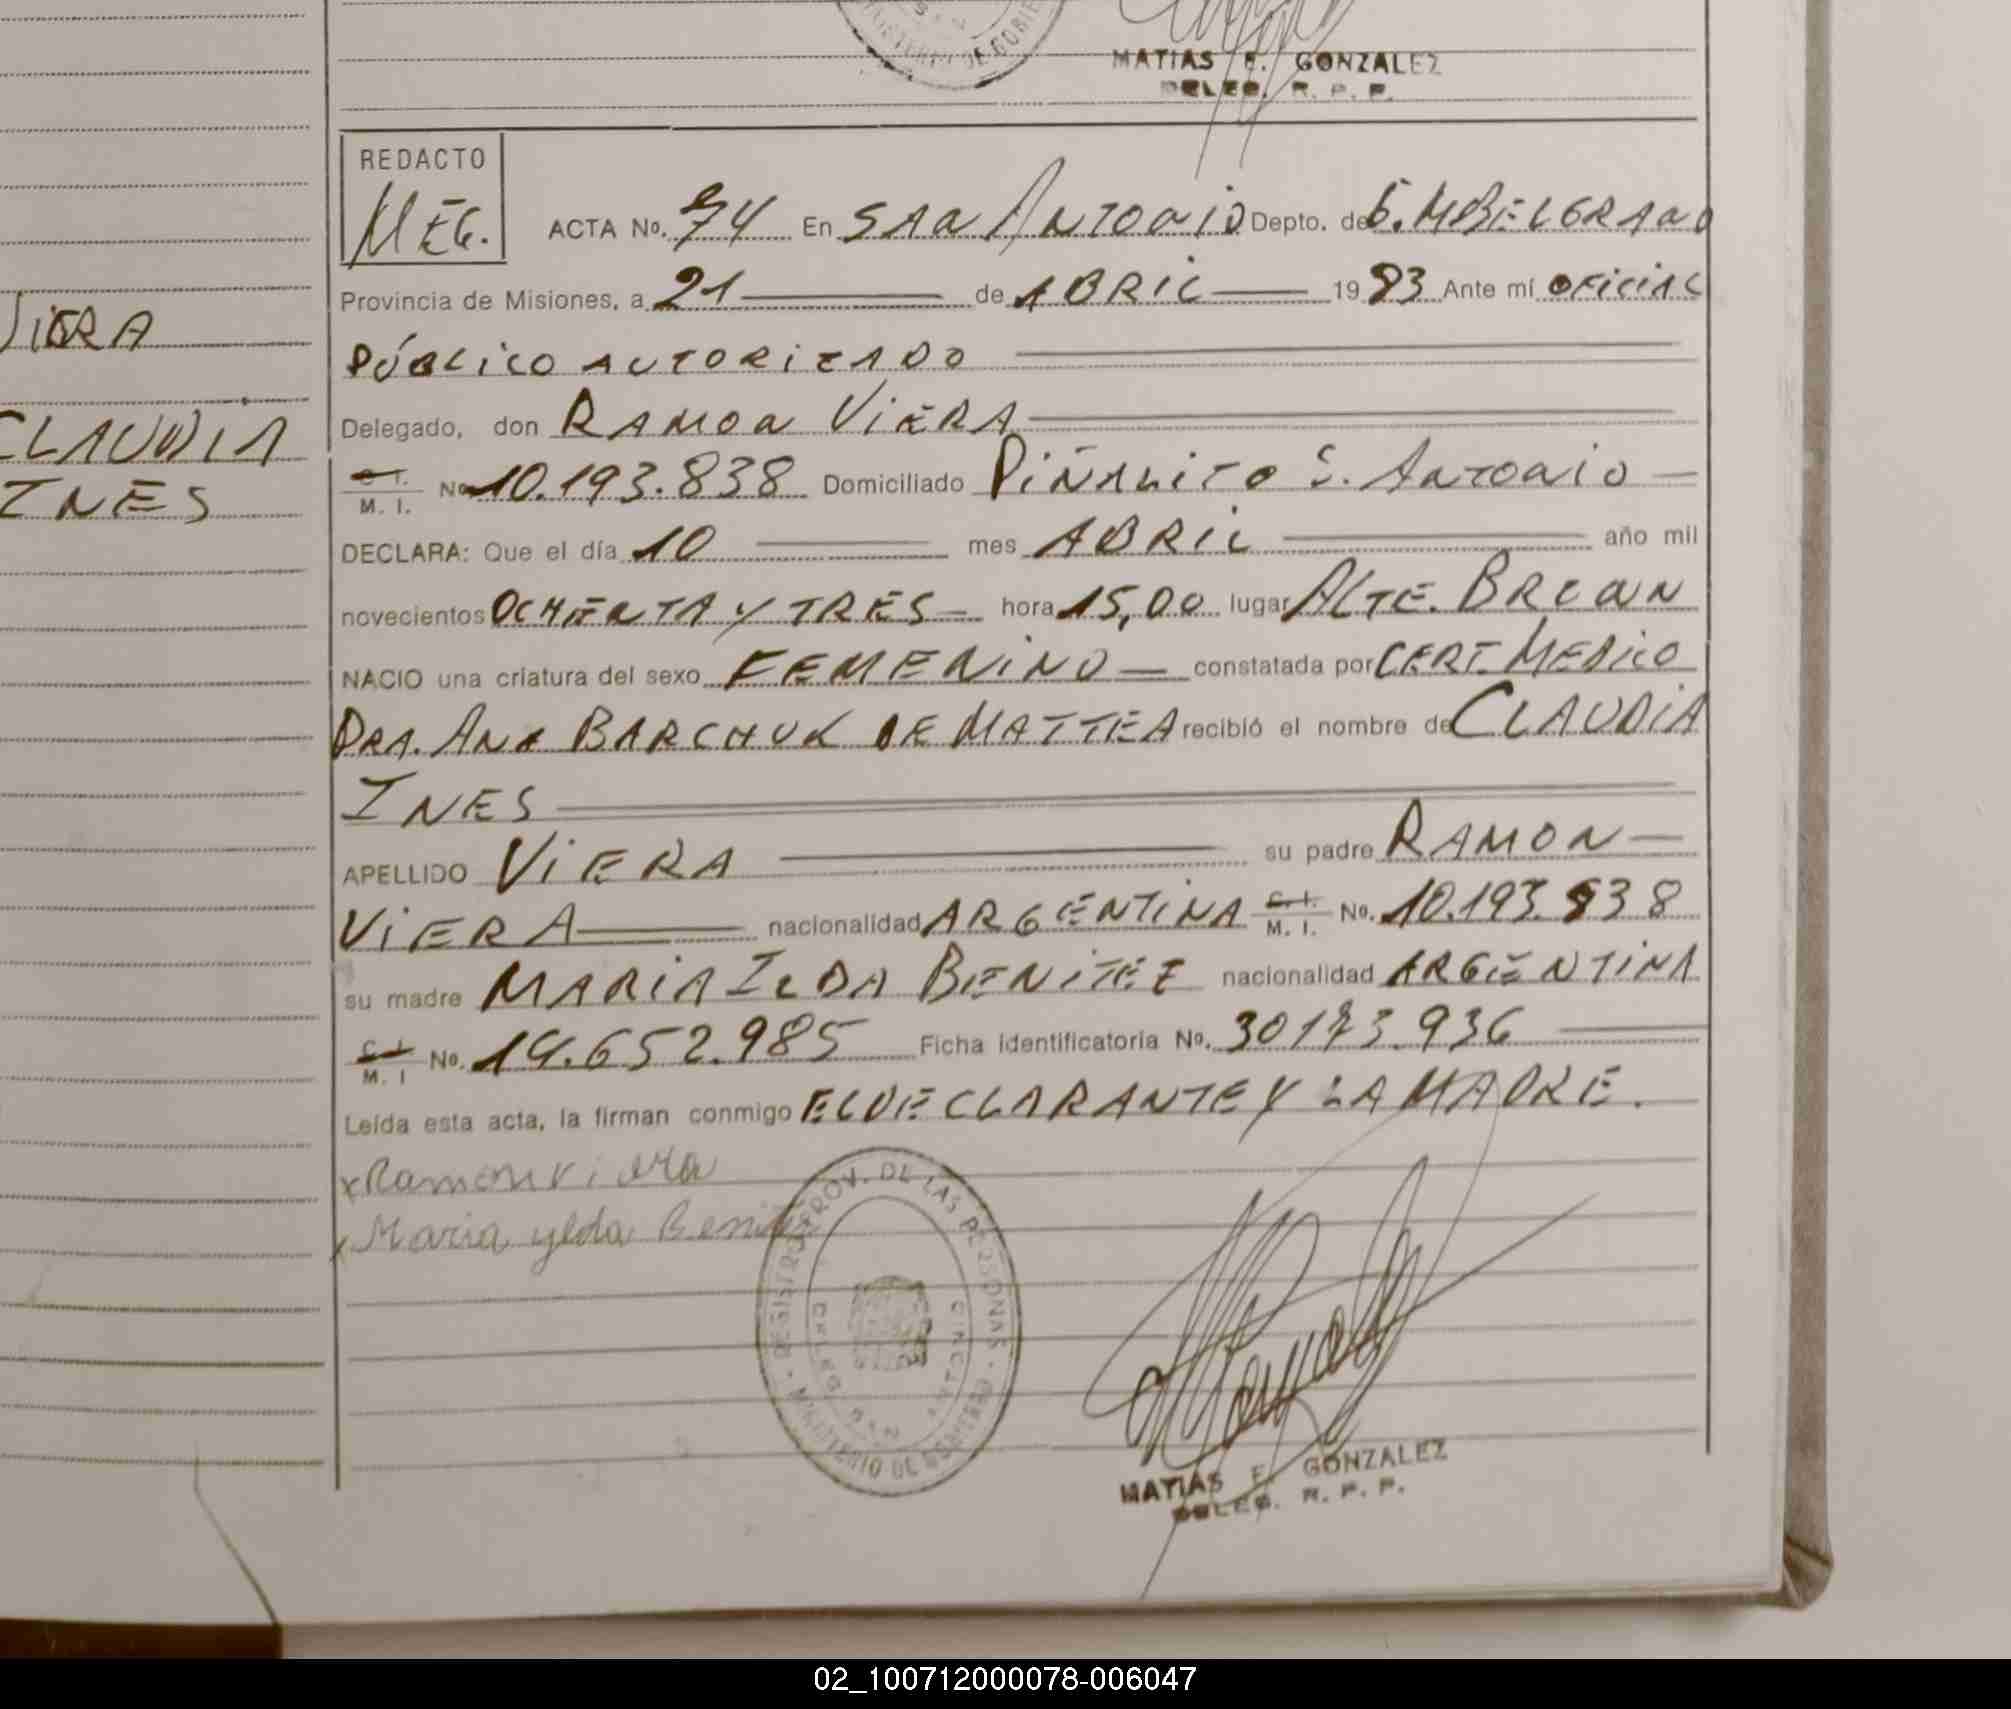 MATIAS E. GONZALEZ
DELEG. R. P. P.
REDACTO
MEG.
ACTA No. 74 En SAN ANTONIO Depto. de G. M BELGRANO
Provincia de Misiones, a 21 de ABRIL 1983 Ante mí OFICIAL
PÚBLICO AUTORIZADO
Delegado, don RAMON VIERA
C. I. / M. I. No. 10.193.838 Domiciliado PIÑALITO S. ANTONIO
DECLARA: Que el día 10 mes ABRIL año mil
novecientos OCHENTA Y TRES hora 15,00 lugar ALTE. BROWN
NACIO una criatura del sexo FEMENINO constatada por CERT. MEDICO
DRA. ANA BARCHUK DE MATTEA recibió el nombre de CLAUDIA
INES
APELLIDO VIERA su padre RAMON
VIERA nacionalidad ARGENTINA C. I. / M. I. No. 10.193.838
su madre MARIA ILDA BENITEZ nacionalidad ARGENTINA
C. I. / M. I No. 14.652.985 Ficha identificatoria No. 30173.936
Leída esta acta, la firman conmigo EL DECLARANTE Y LA MADRE.
x Ramon viera
x Maria ylda Benitez
REGISTRO PROV. DE LAS PERSONAS - MINISTERIO DE GOBIERNO
DELEG. SAN ANTONIO
MATIAS E. GONZALEZ
DELEG. R. P. P.
VIERA
CLAUDIA
INES
02_100712000078-006047